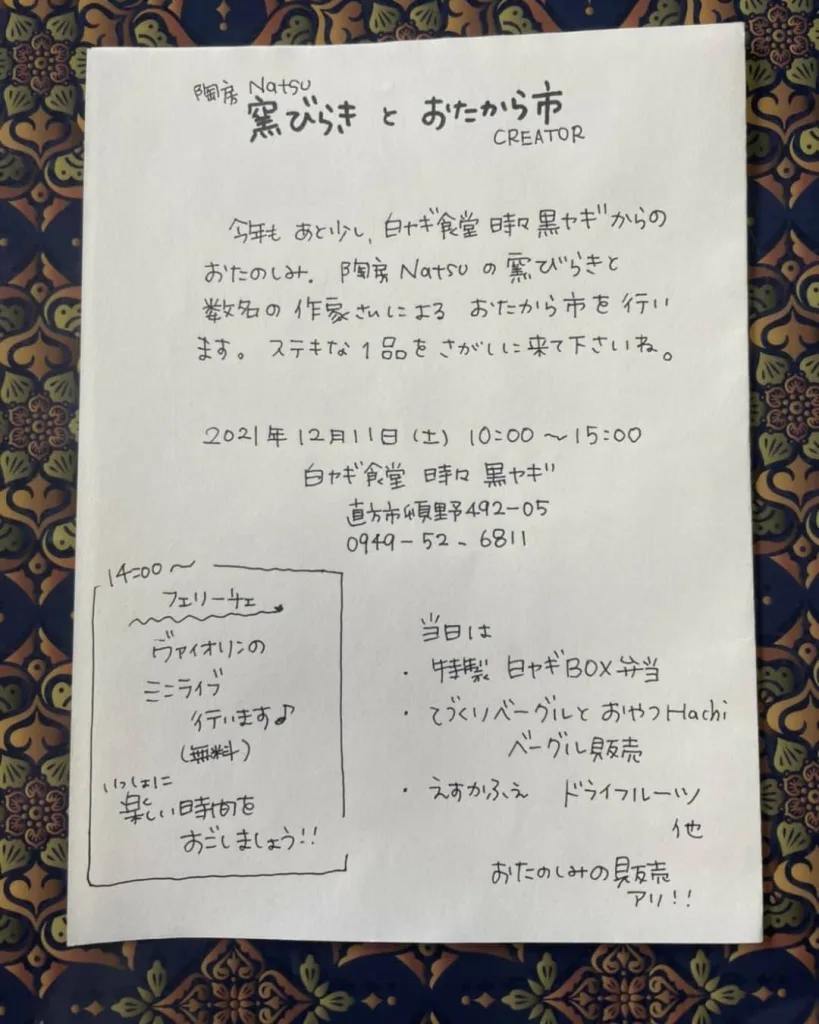 陶房 Natsu
窯びらき と おたから市
CREATOR
今年も あと少し、白ヤギ食堂 時々 黒ヤギからの
おたのしみ. 陶房 Natsu の 窯びらきと
数名の 作家さんによる おたから市を 行い
ます。 ステキな 1品を さがしに来て下さいね。
2021年 12月11日 (土) 10:00 〜 15:00
白ヤギ食堂 時々 黒ヤギ
直方市頓野492-05
0949-52-6811
14:00 〜
フェリーチェ
ヴァイオリンの
ミニライブ
行います♪
(無料)
いっしょに
楽しい時間を
おごしましょう!!
当日は
・ 特製 白ヤギBOX弁当
・ てづくりベーグルと おやつHachi
ベーグル販売
・ えすかふぇ ドライフルーツ
他
おたのしみの販売
アリ!!